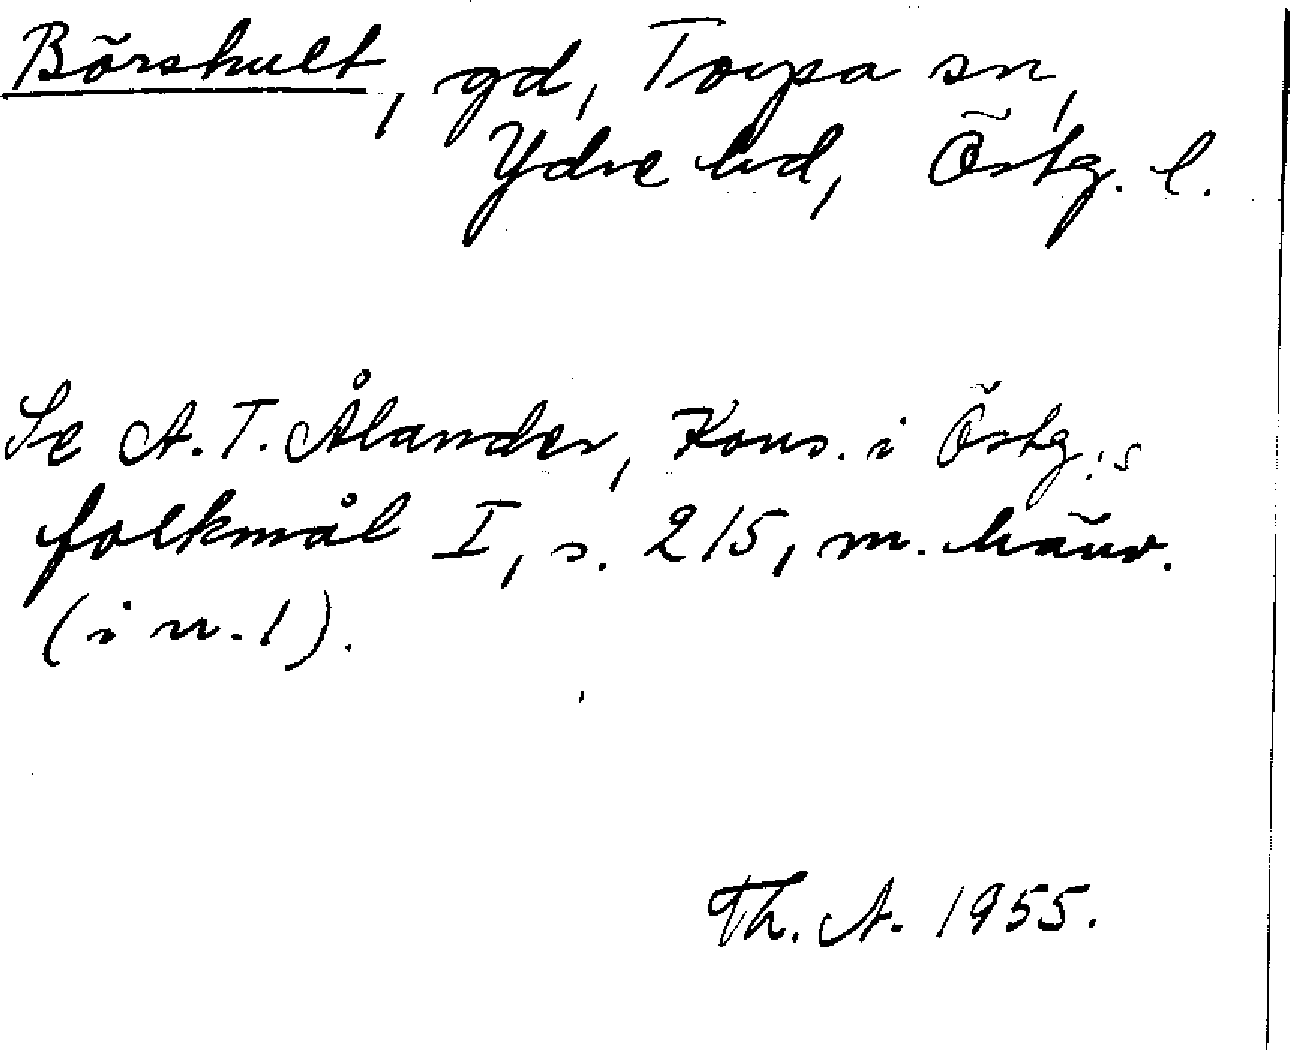 Börshult, gd, Torpa sn,
Ydre hd, Östg. l.
Se A. T. Ålander, Kons. i Östg:s
folkmål I, s. 215, m. hänv.
(i n. 1).
Th. A. 1955.